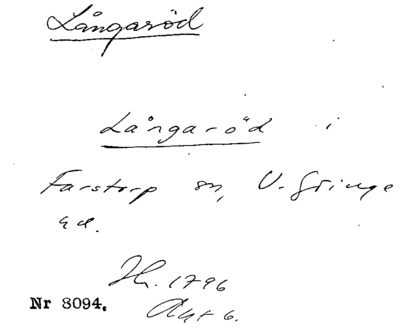 Långaröd
Långaröd i
Farstorp sn, V. Göinge
hd.
Hr. 1796
Akt 6.
Nr 8094.